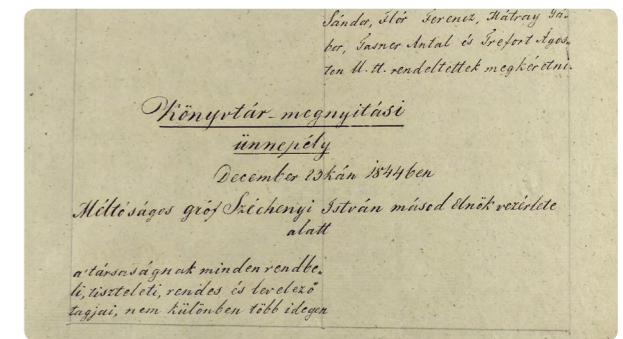 Sándor, Flór Ferencz, Mátray Gá-
bor, Tasner Antal és Trefort Ágos-
ton U. tt. rendeltettek megkéretni.
Könyvtár-megnyitási
ünnepély
December 23kán 1844ben
Méltóságos gróf Széchenyi István másod Elnök vezérlete
alatt
a' társaságnak minden rendbe-
li, tiszteleti, rendes és levelező
tagjai, nem különben több idegen